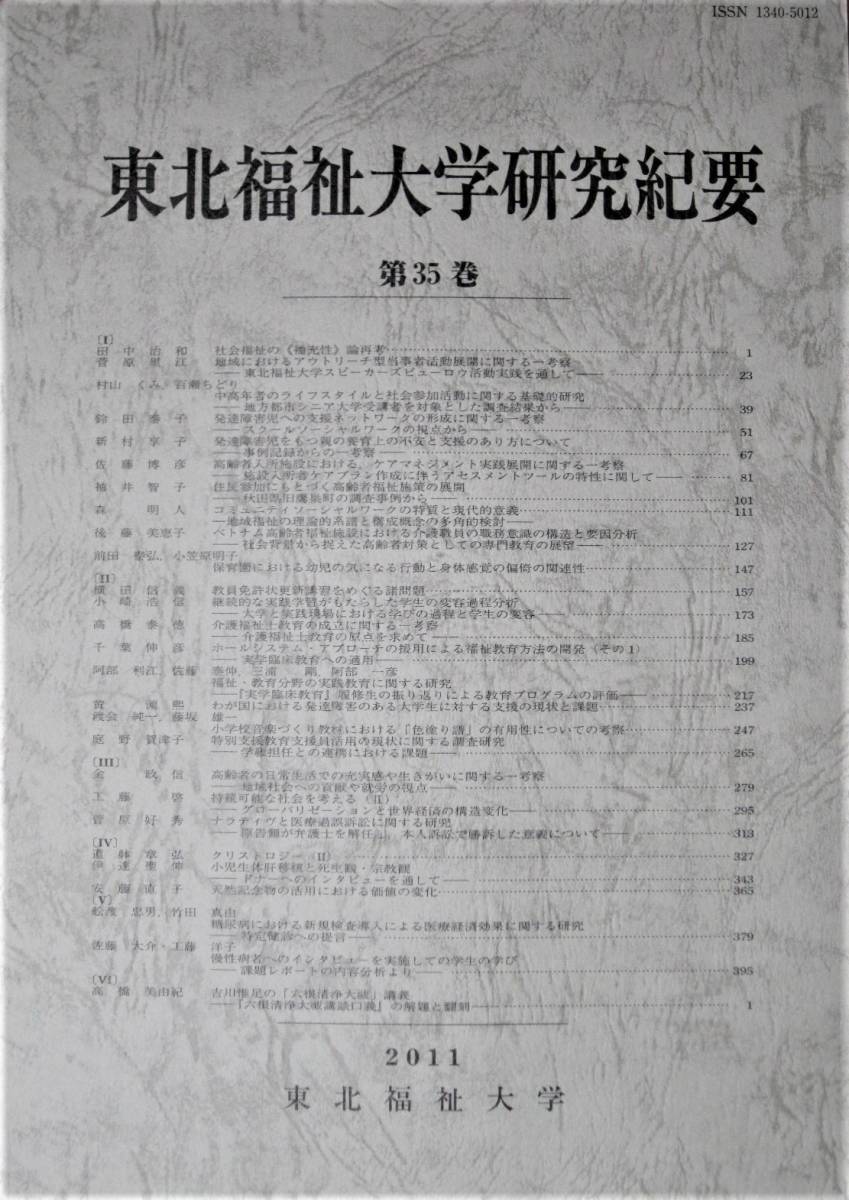 ISSN 1340-5012
東北福祉大学研究紀要
第35巻
〔I〕
田中治和 社会福祉の《補充性》論再考 1
菅原里江 地域におけるアウトリーチ型当事者活動展開に関する一考察
――東北福祉大学スピーカーズビューロウ活動実践を通して―― 23
村山 くみ, 百瀬ちどり
中高年者のライフスタイルと社会参加活動に関する基礎的研究
――地方都市シニア大学受講者を対象とした調査結果から―― 39
鈴田泰子 発達障害児への支援ネットワークの形成に関する一考察
――スクールソーシャルワークの視点から―― 51
新村享子 発達障害児をもつ親の養育上の不安と支援のあり方について
――事例記録からの一考察―― 67
佐藤博彦 高齢者入所施設における、ケアマネジメント実践展開に関する一考察
――施設入所者ケアプラン作成に伴うアセスメントツールの特性に関して―― 81
袖井智子 住民参加にもとづく高齢者福祉施策の展開
――秋田県旧鷹巣町の調査事例から―― 101
森 明人 コミュニティソーシャルワークの特質と現代的意義 111
―地域福祉の理論的系譜と構成概念の多角的検討――
後藤美恵子 ベトナム高齢者福祉施設における介護職員の職務意識の構造と要因分析
――社会背景から捉えた高齢者対策としての専門教育の展望―― 127
前田 泰弘, 小笠原明子
保育園における幼児の気になる行動と身体感覚の偏倚の関連性 147
〔II〕
横田信義 教員免許状更新講習をめぐる諸問題 157
小崎浩信 継続的な実践学習がもたらした学生の変容過程分析
――大学と実践現場における学びの過程と学生の変容―― 173
高橋泰徳 介護福祉士教育の成立に関する一考察
――介護福祉士教育の原点を求めて―― 185
千葉伸彦 ホールシステム・アプローチの援用による福祉教育方法の開発(その1)
――実学臨床教育への適用―― 199
阿部 利江, 佐藤 泰伸, 三浦 剛, 阿部 一彦
福祉・教育分野の実践教育に関する研究
――『実学臨床教育』履修生の振り返りによる教育プログラムの評価―― 217
黄 淵熙 わが国における発達障害のある大学生に対する支援の現状と課題 237
渡会 純一, 藤坂 雄一
小学校音楽づくり教材における「色塗り譜」の有用性についての考察 247
庭野賀津子 特別支援教育支援員活用の現状に関する調査研究
――学級担任との連携における課題―― 265
〔III〕
金 政信 高齢者の日常生活での充実感や生きがいに関する一考察
――地域社会への貢献や就労の視点―― 279
工藤 啓 持続可能な社会を考える(II)
――グローバリゼーションと世界経済の構造変化―― 295
菅原好秀 ナラティヴと医療過誤訴訟に関する研究
――原告側が弁護士を解任し、本人訴訟で勝訴した意義について―― 313
〔IV〕
章弘 クリストロジー(II) 327
伊達聖伸 小児生体肝移植と死生観・宗教観
――ドナーへのインタビューを通して―― 343
安藤直子 天然記念物の活用における価値の変化 365
〔V〕
舩渡忠男, 竹田 真由
糖尿病における新規検査導入による医療経済効果に関する研究
――特定健診への提言―― 379
佐藤 大介・工藤 洋子
慢性病者へのインタビューを実施しての学生の学び
――課題レポートの内容分析より―― 395
〔VI〕
高橋美由紀 吉川惟足の「六根清浄大祓」講義
――『六根清浄大祓講談口義』の解題と翻刻―― 1
2011
東北福祉大学